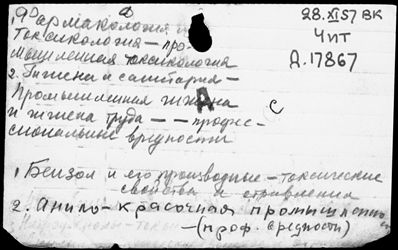 1, Фармакология и
токсикология — про-
мышленная токсикология
2. Гигиена и санитария —
Промышленная гигиена
и гигиена труда — — профес-
сиональные вредности
28.XI 57 ВК
Чит
Д.17867
А
С
1, Бензол и его производные — токсические
свойства и отравления
2. Анило-красочная промышленно
— (проф. вредность)